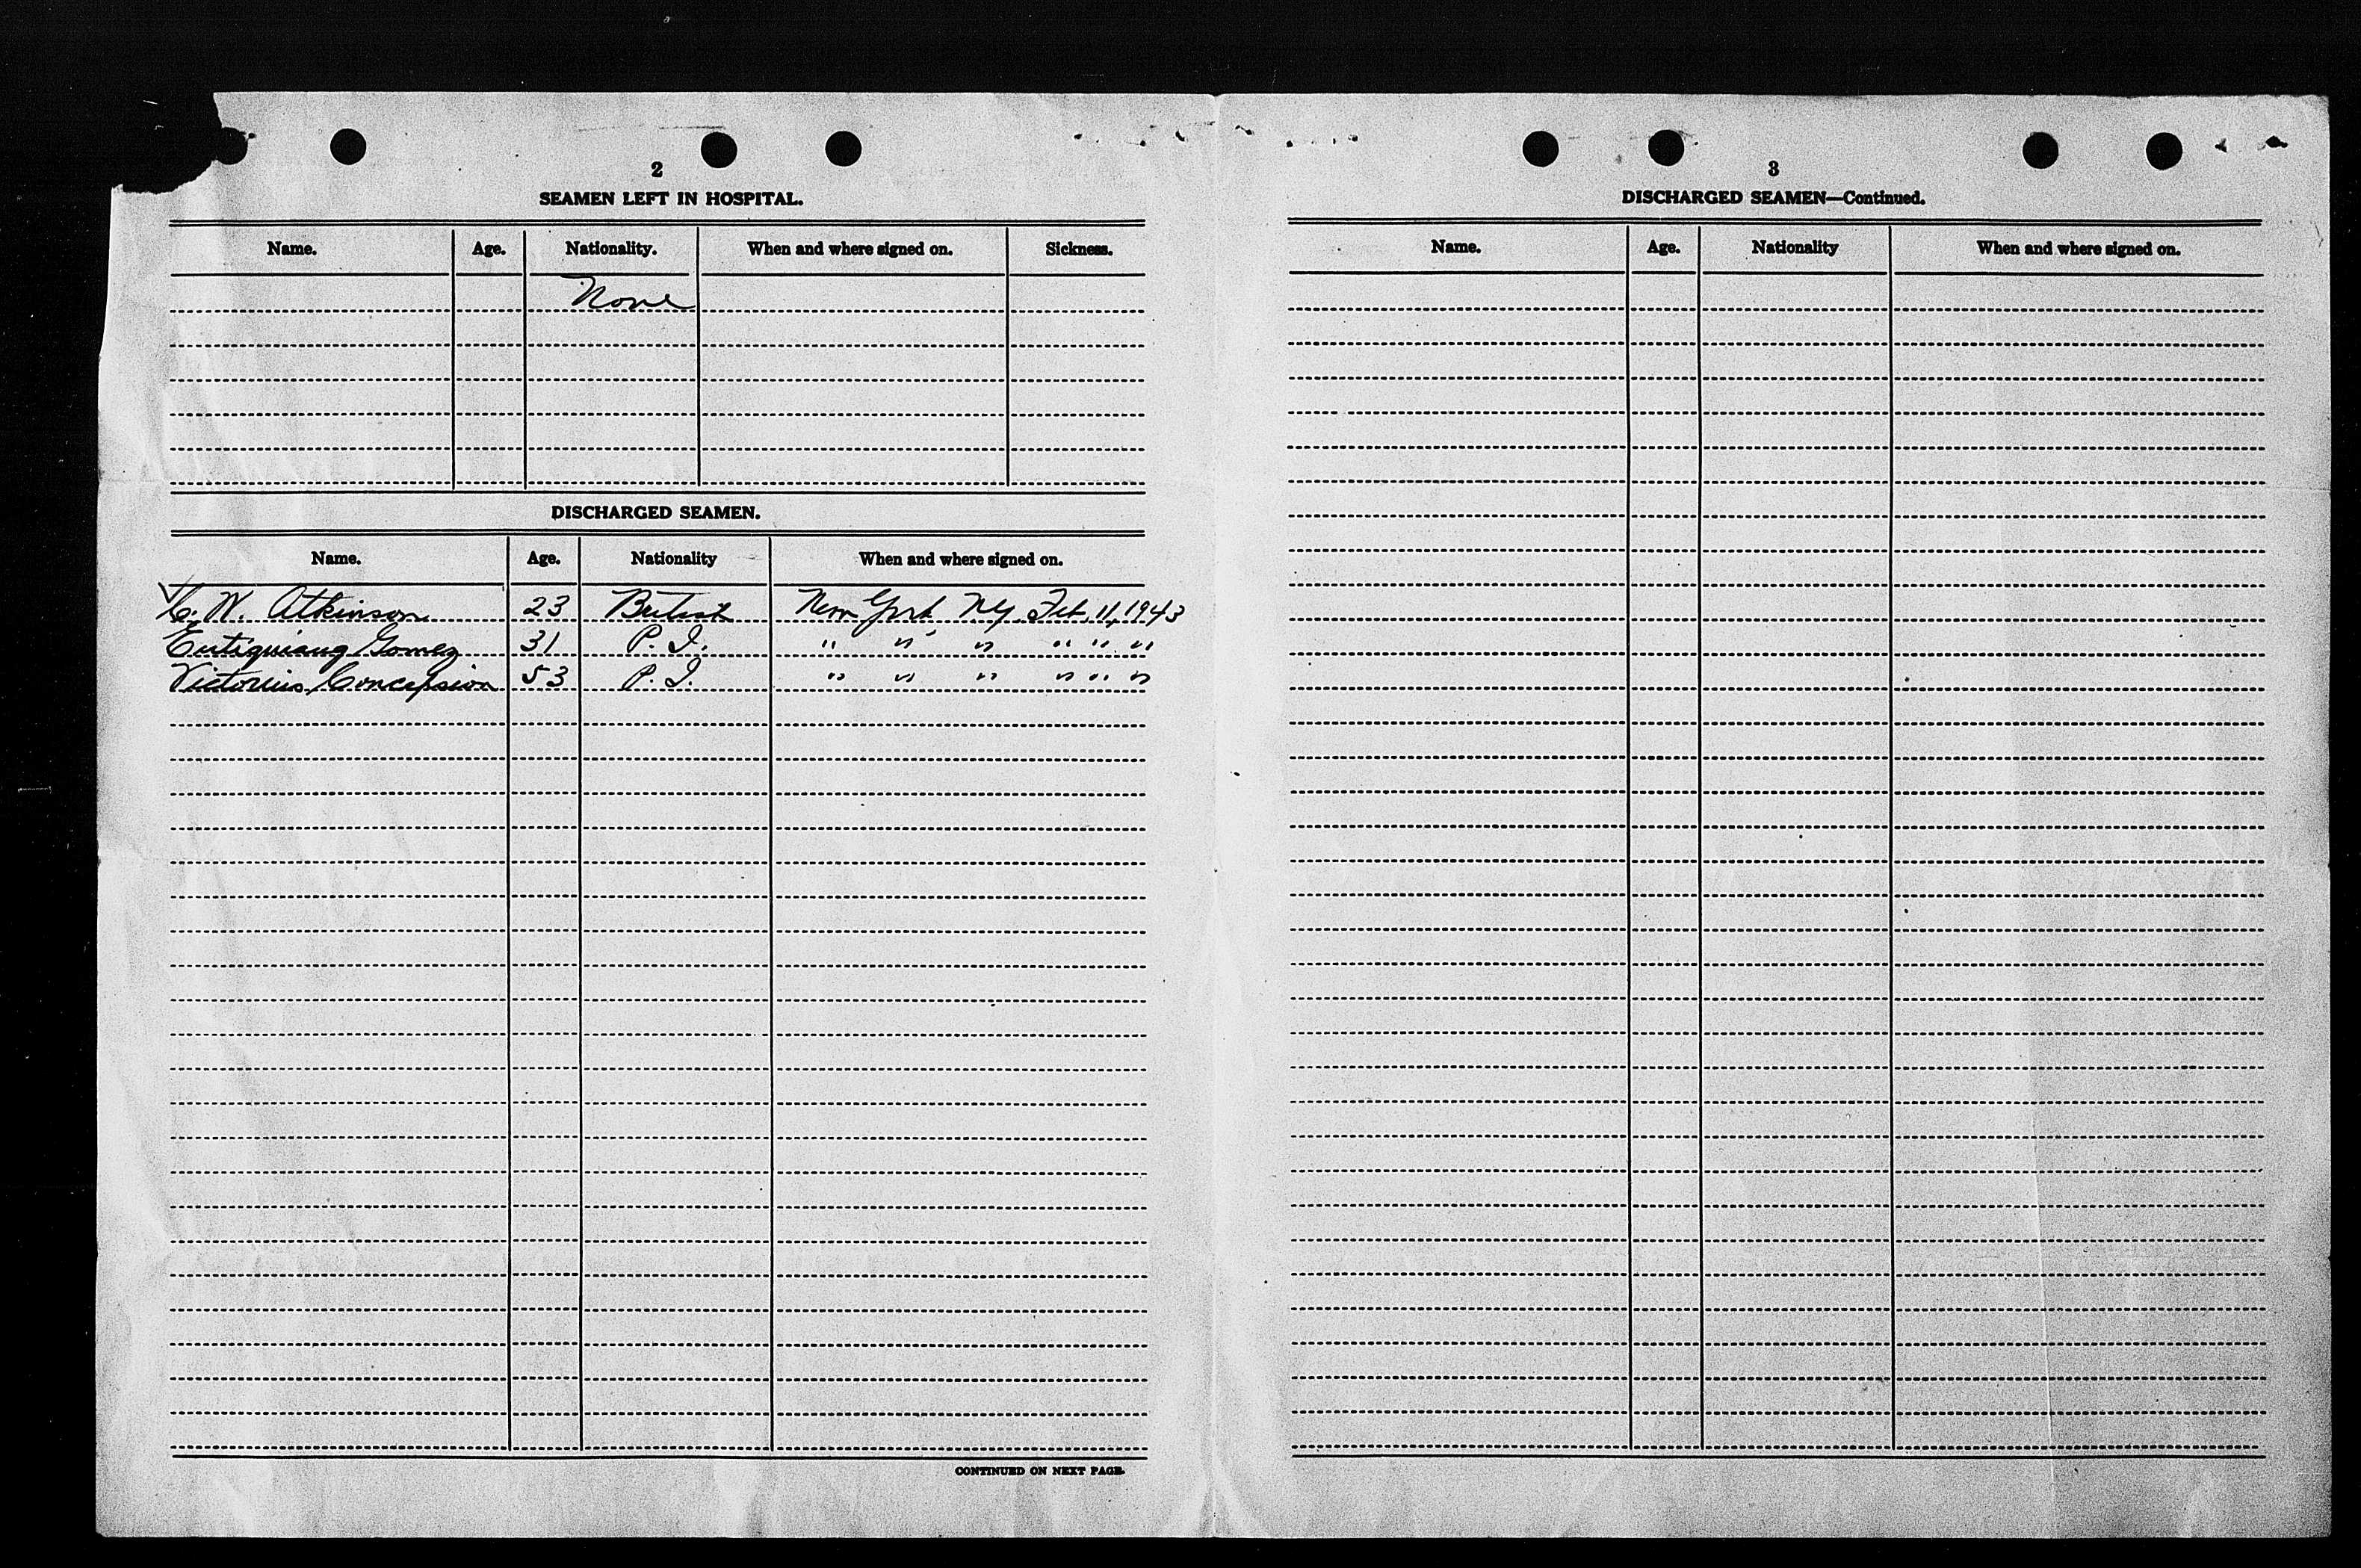 2
SEAMEN LEFT IN HOSPITAL.
Name. Age. Nationality. When and where signed on. Sickness.
None
DISCHARGED SEAMEN.
Name. Age. Nationality When and where signed on.
C. W. Atkinson 23 British New York NY. Feb. 11, 1943
Gomez 31 P. I. " " " " " "
Concepsion 53 P. I. " " " " " "
CONTINUED ON NEXT PAGE.
3
DISCHARGED SEAMEN—Continued.
Name. Age. Nationality When and where signed on.